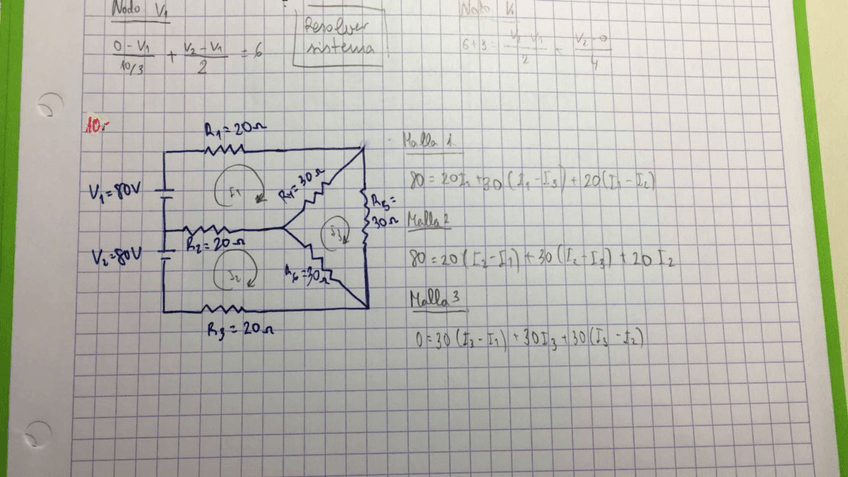 Nodo V1
0-V1/10/3 + V2-V1/2 = 6
Resolver
sistema
6+3= V2-V1/2 = V2-0/4
10.-
R1=20Ω
V1=80V
I1
R4=30Ω
R5=
30Ω
R2=20Ω
I3
V2=80V
I2
R6=30Ω
R3=20Ω
Malla 1
80=20I1+30(I1-I3)+20(I1-I2)
Malla 2
80=20(I2-I1)+30(I2-I3)+20I2
Malla 3
0=30(I3-I1)+30I3+30(I3-I2)